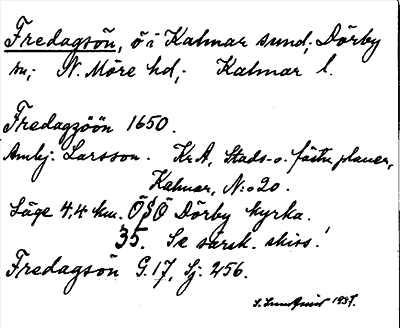 Fredagsön, ö i Kalmar sund; Dörby
sn; N. Möre hd; Kalmar l.
Fredagzöön 1650.
Ambj. Larsson. KrA, Stads- o. fästn. planer,
Kalmar, N:o 20.
Läge 4,4 km. ÖSÖ Dörby kyrka.
35. Se särsk. skiss!
Fredagsön G. 17, Sj. 256.
1937.